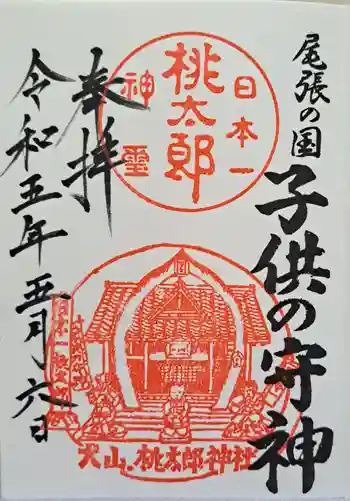 尾張の国
子供の守神
日本一
桃太郎
神璽
犬山・桃太郎神社
奉拝
令和五年五月六日